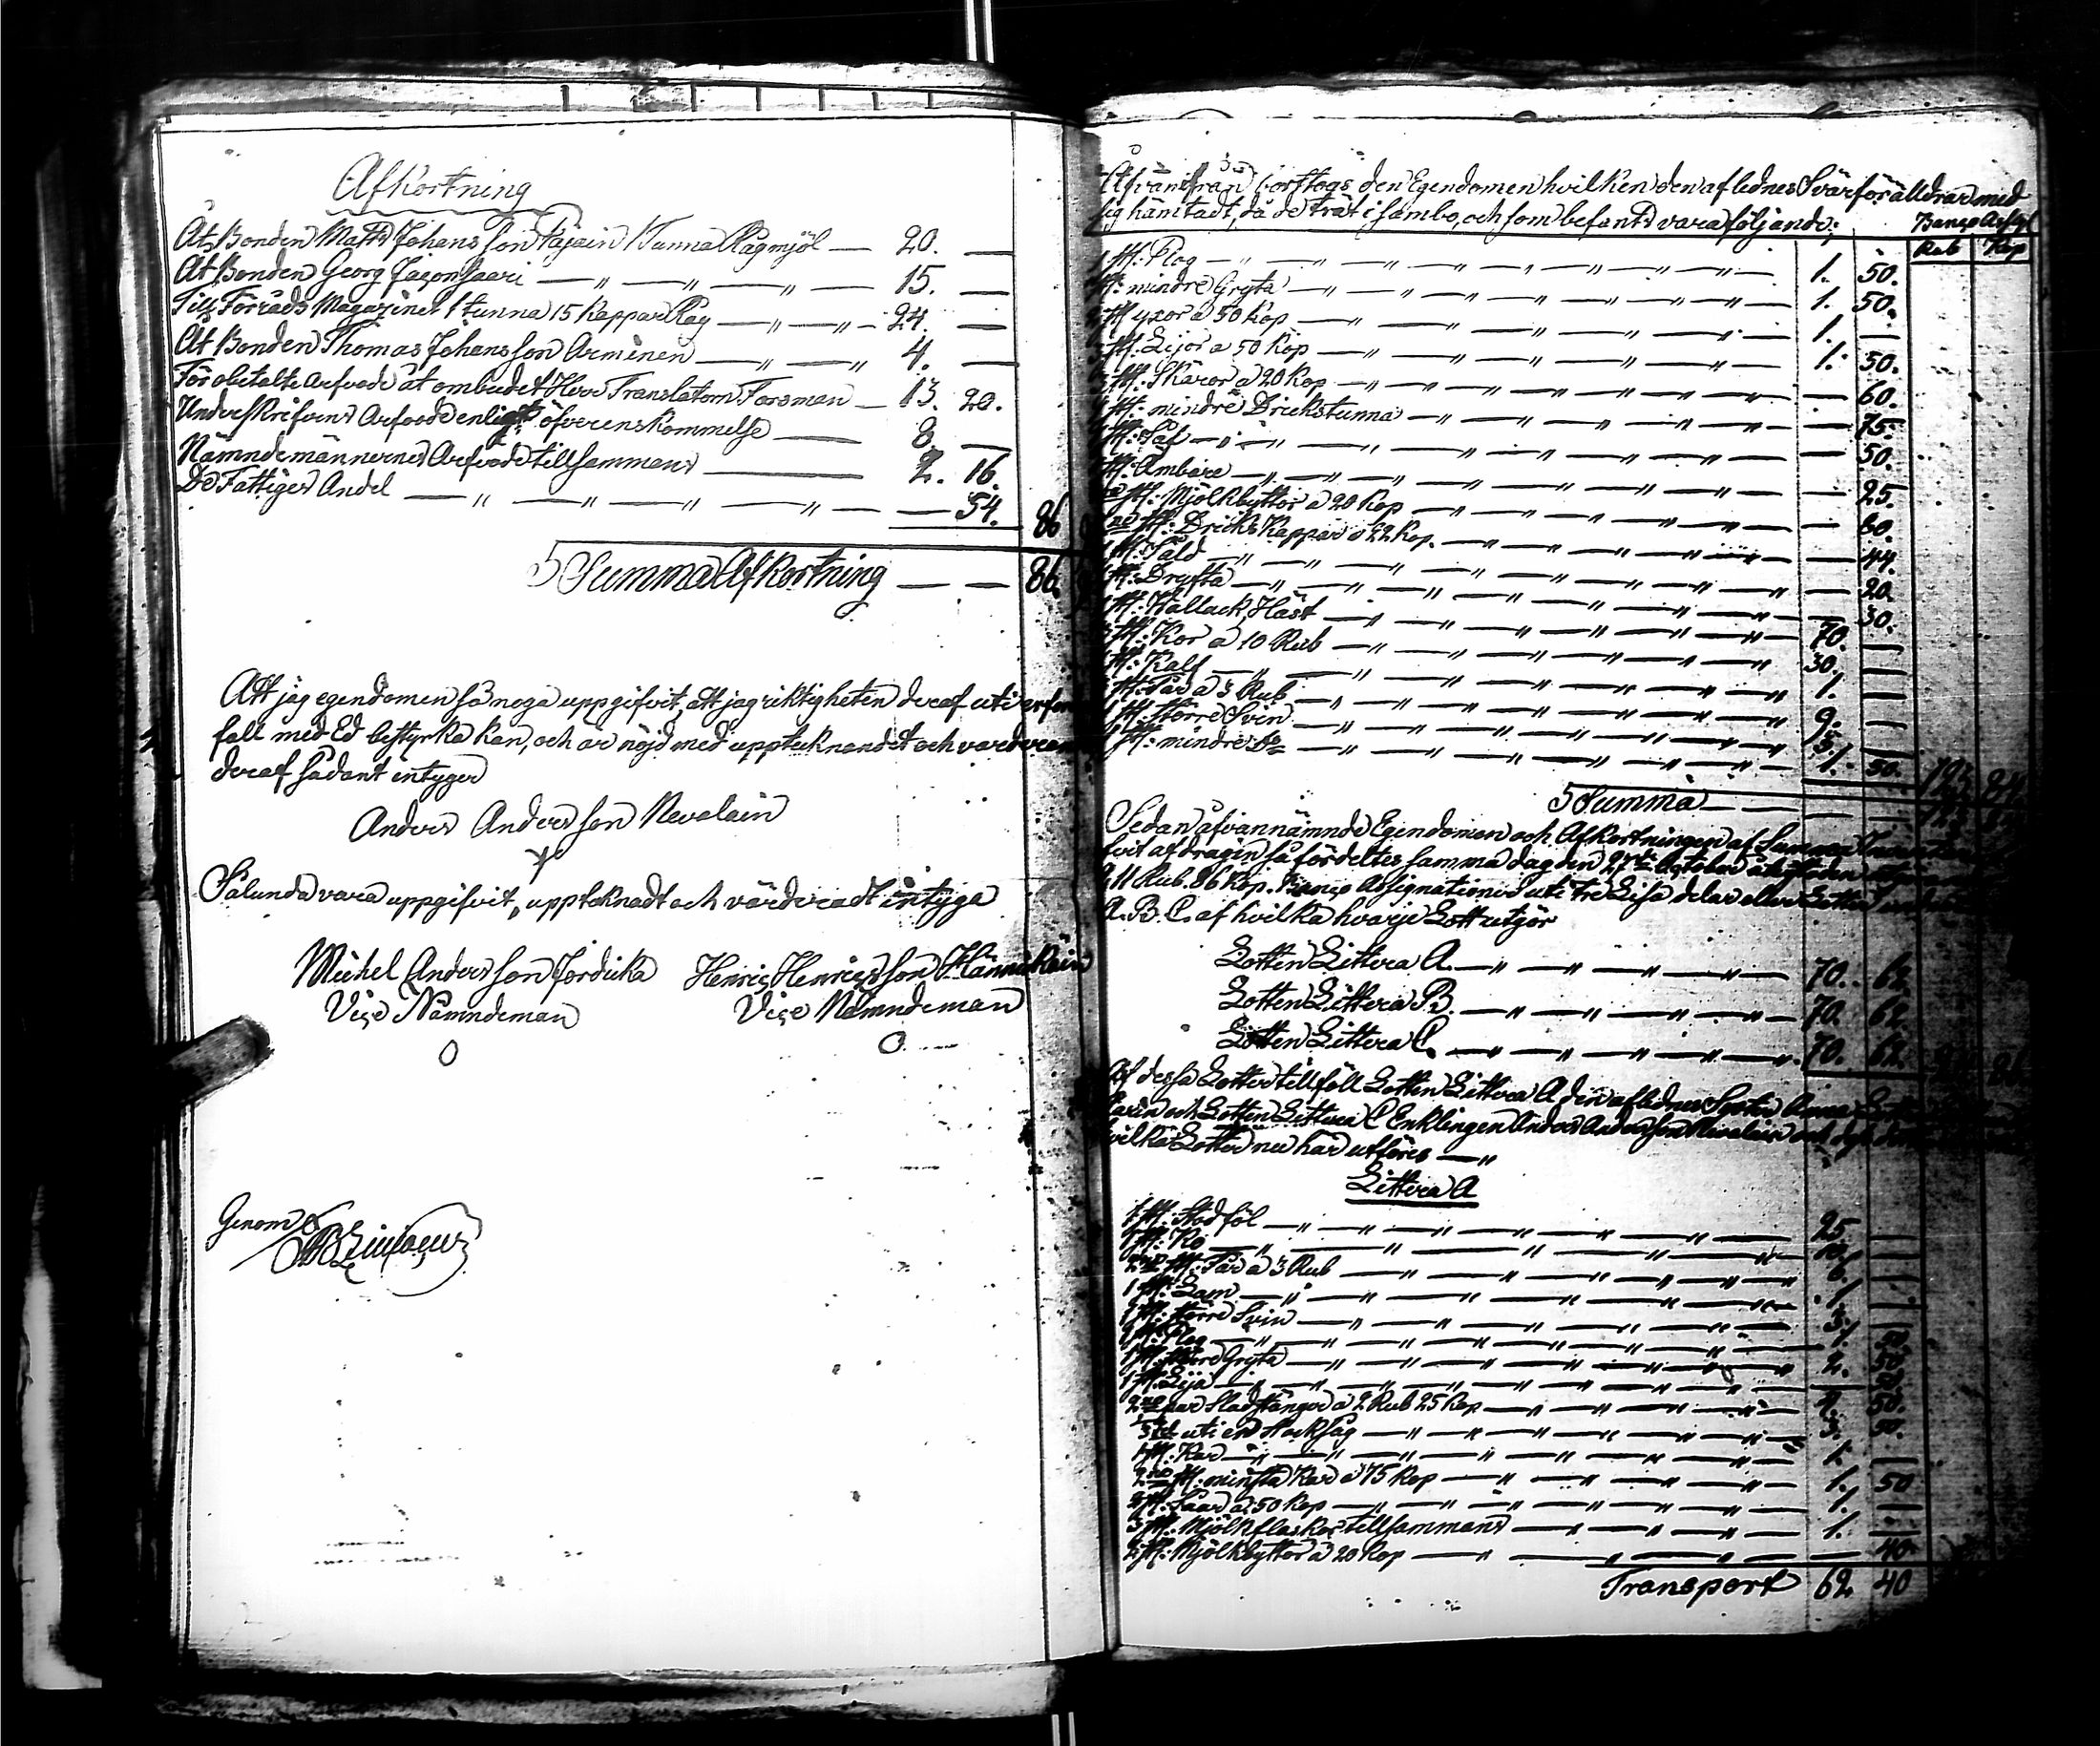 Afkortning
Åt Bonden Matts Johansson Pajain 1 Tunna Rågmjöl — 20. —
Åt Bonden Georg — „ — „ — „ — 15. —
Till Förråds Magazinet 1 tunna 15 Kappar Råg — „ — „ — 24. —
Åt Bonden Thomas Johansson Arminen — „ — „ 4. —
För obetalte Arfvode åt ombudet Herr Translatorn Forsman — 13. 20.
Underskrifvens Arfvode enligt öfverenskommelse — 8. —
Nämndemännernes Arfvode tillsammans — 2. 16.
De Fattiges Andel — „ — „ — „ — „ — 54. 86
Summa Afkortning — — 86.
Att jag egendomen så noga uppgifvit, att jag riktigheten deraf uti
fall med Ed bestyrka kan, och är nöjd med upptecknandet och
deraf sådant intyger
Anders Andersson Nevalain
Sålunda vara uppgifvit, upptecknadt och värderadt intyga
Michel Andersson Jordicka Henric Henricsson Hännikäin
Vice Nämndeman Vice Nämndeman
Genom
Åfvanifrån borttogs den Egendomen hvilken den aflednes Svärföräldrar med
sig hämtadt, då de trät i sambo, och som befants vara följande;
Banco Assig
Rub Kop
1 st: Plog — „ — „ — „ 1. 50.
1 st: mindre Gryta — „ — „ — „ 1. 50.
2 st yxor à 50 Kop — „ — „ — „ 1. —
3 st. Lijor à 50 Kop — „ — „ — „ 1. 50.
3 st. Skäror à 20 Kop — „ — „ — „ — 60.
1 st: mindre Drickstunna — „ — „ — 75.
1 st: Såf — „ — „ — „ — 50.
1 st: Ambare — „ — „ — „ — 25.
st: Mjölkbyttor à 20 Kop — „ — „ — 80.
2ne st: Dricks Kappar à 22 Kop. — „ — „ — 44.
1 st. Såld — „ — „ — „ — 20.
1 st: Dryfta — „ — „ — „ — 30.
1 st. Wallack Häst — „ — „ — „ 70. —
3 st. Kor à 10 Rub — „ — „ — „ 30. —
1 st: Kalf — „ — „ — „ 1. —
3 st: Får à 3 Rub — „ — „ — „ 9. —
1 st. större Svin — „ — „ — „ 3. —
1 st: mindre Do — „ — „ — „ 1. 50. 123 84
Summa — — 123
Sedan åfvannämnde Egendomen och Afkortningen af Summa
fvit afdragin så fördeltes samma dag den 27de October
211 Rub. 86 Kop. Banco Assignationer uti tre Lika delar eller Lotter
A. B. C. af hvilka hvarje Lott utgör
Lotten Littera A. — „ — „ — „ 70. 62
Lotten Littera B. — „ — „ — „ 70. 62
Lotten Littera C. — „ — „ — „ 70. 62.
Af dessa Lotter tillföll Lotten Littera A den aflednes Syster Anna
och Lotten Littera C Enklingen Anders Andersson Nevalain
hvilka Lotter nu här utföres — „
Littera A
1 st: Stod föl — „ — „ — „ 25. —
1 st: Ko — „ — „ — „ 10. —
2ne st: Får à 3 Rub — „ — „ — „ 6. —
1 st. Lam — „ — „ — „ 1. —
1 st: större Svin — „ — „ — „ 3. —
1 st: Plog — „ — „ — „ 1. 50.
1 st. större Gryta — „ — „ — „ 2. 50
1 st: Lija — „ — „ — „ — 50
2ne par Slädstänger à 2 Rub 25 Kop — „ — „ 4. 50.
uti en Stocksåg — „ — „ — „ 3. 50.
1 st. Kar — „ — „ — „ 1. —
2ne st. minsta Kar à 75 Kop — „ — „ 1. 50
2 st. Saar à 50 Kop — „ — „ — „ 1. —
3 st. Mjölkflaskor tillsammans — „ — „ 1. —
2 st: Mjölkbyttor à 20 Kop — „ — „ — 40.
Transport 62 40